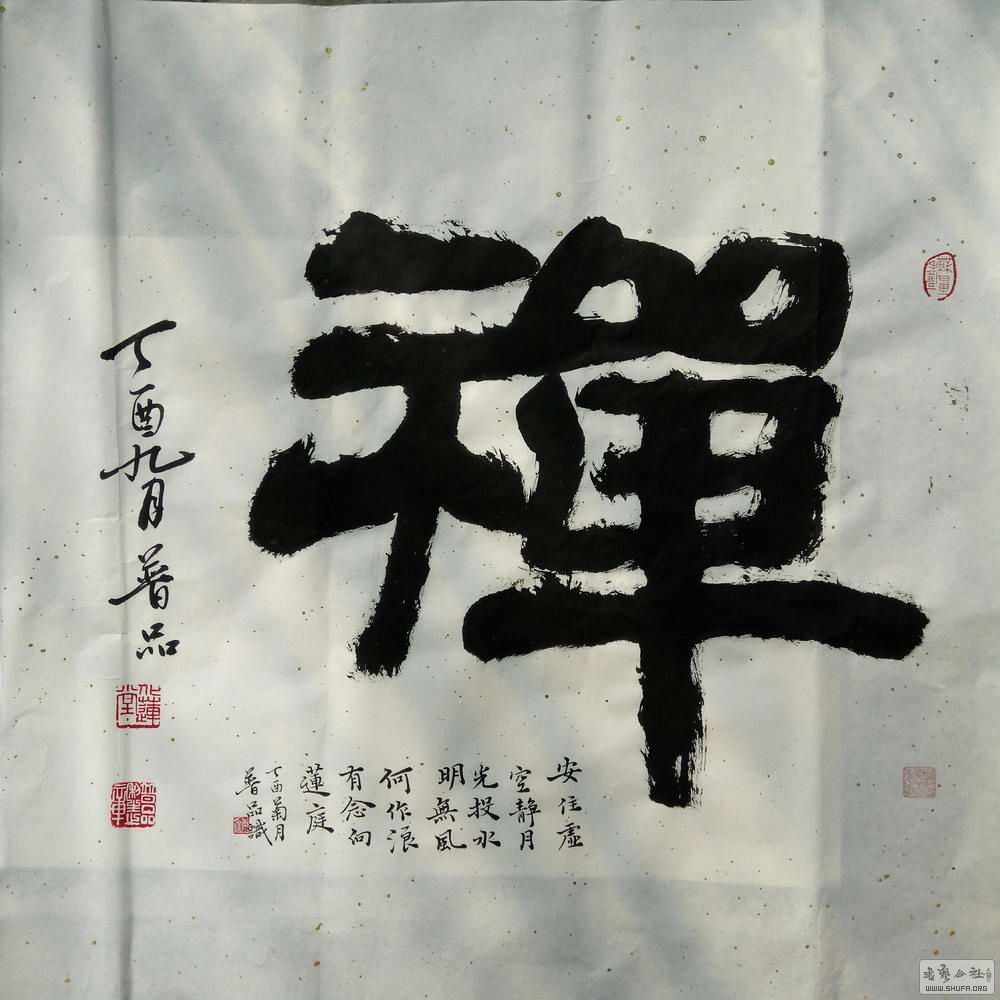 禪
安住虛
空靜月
光投水
明無風
何作浪
有念向
蓮庭
丁酉菊月
普品識
丁酉九月普品
蓮堂
書藝公社
WWW.SHUFA.ORG